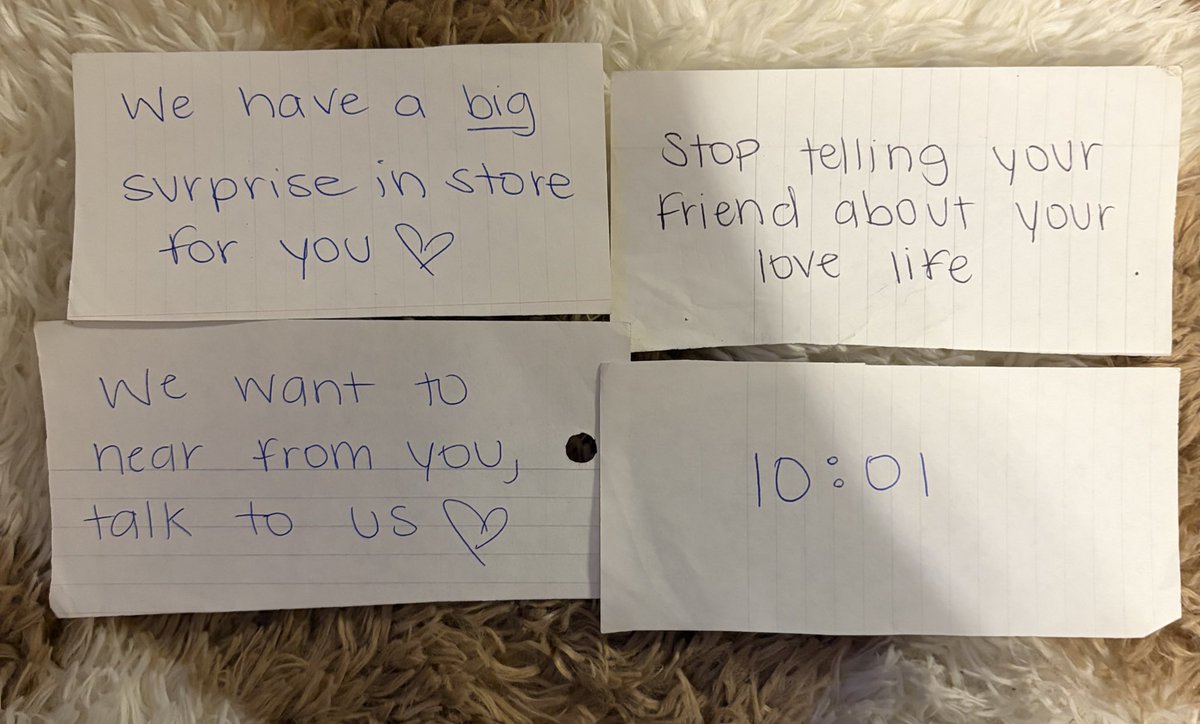 We have a big
surprise in store
for you ♡
Stop telling your
friend about your
love life
We want to
hear from you,
talk to us ♡
10:01